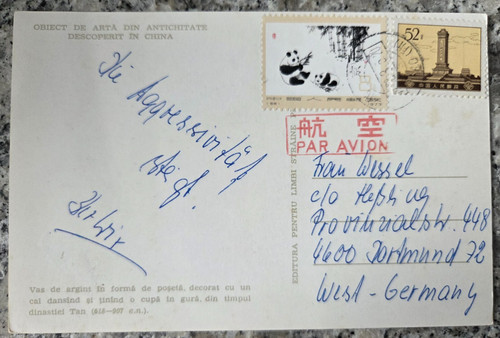 OBIECT DE ARTĂ DIN ANTICHITATE
DESCOPERIT ÎN CHINA
Die Aggressivität
steigt.
52分
中国人民邮政
航空
PAR AVION
EDITURA PENTRU LIMBI STRĂINE
Frau Wessel
c/o Heßling
Provinzialstr. 448
4600 Dortmund 72
West-Germany
Vas de argint în formă de poșetă, decorat cu un
cal dansînd și ținînd o cupă în gură, din timpul
dinastiei Tan (618—907 e.n.).